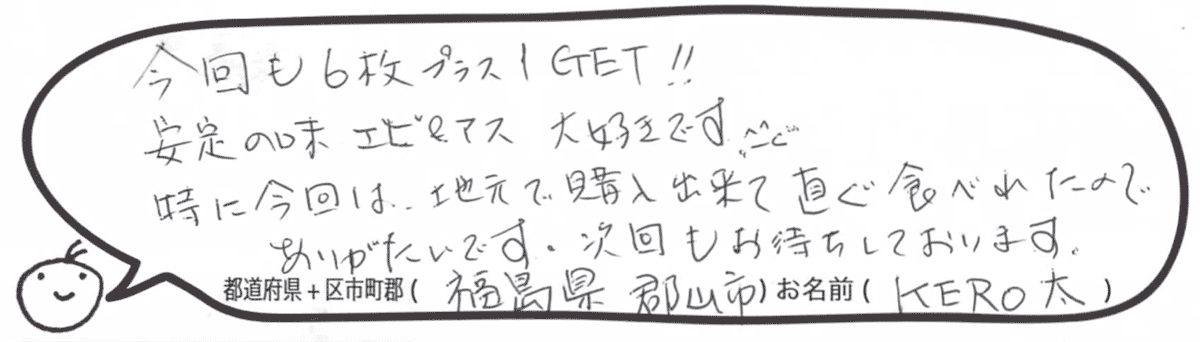 今回も6枚プラス1 GET!!
安定の味 エビ&アス 大好きです
特に今回は、地元で購入出来て直ぐ食べれたので
ありがたいです。次回もお待ちしております。
都道府県+区市町郡( 福島県 郡山市)お名前( KERO太 )